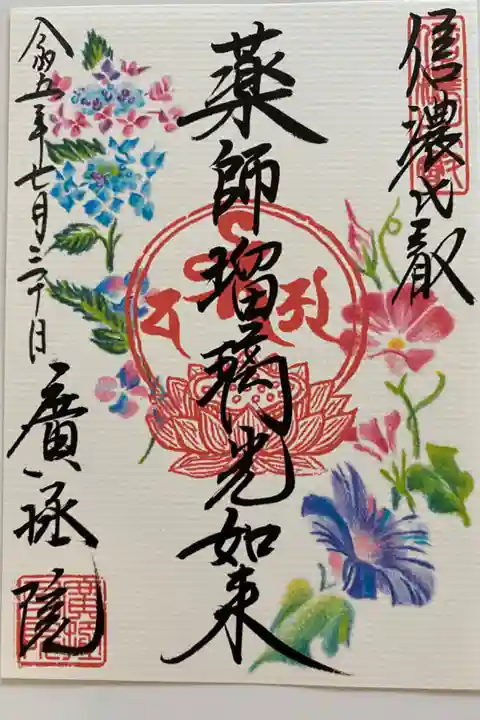 信濃比叡
薬師瑠璃光如来
令和五年七月三十日
廣拯院